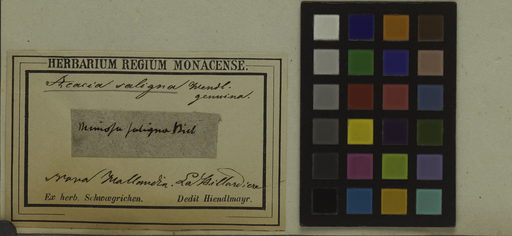 HERBARIUM REGIUM MONACENSE.
Acacia saligna Wendl.
genuina.
Mimosa saligna
Nova Hollandia. La Billardiere
Ex herb. Schwægrichen. Dedit Hiendlmayr.